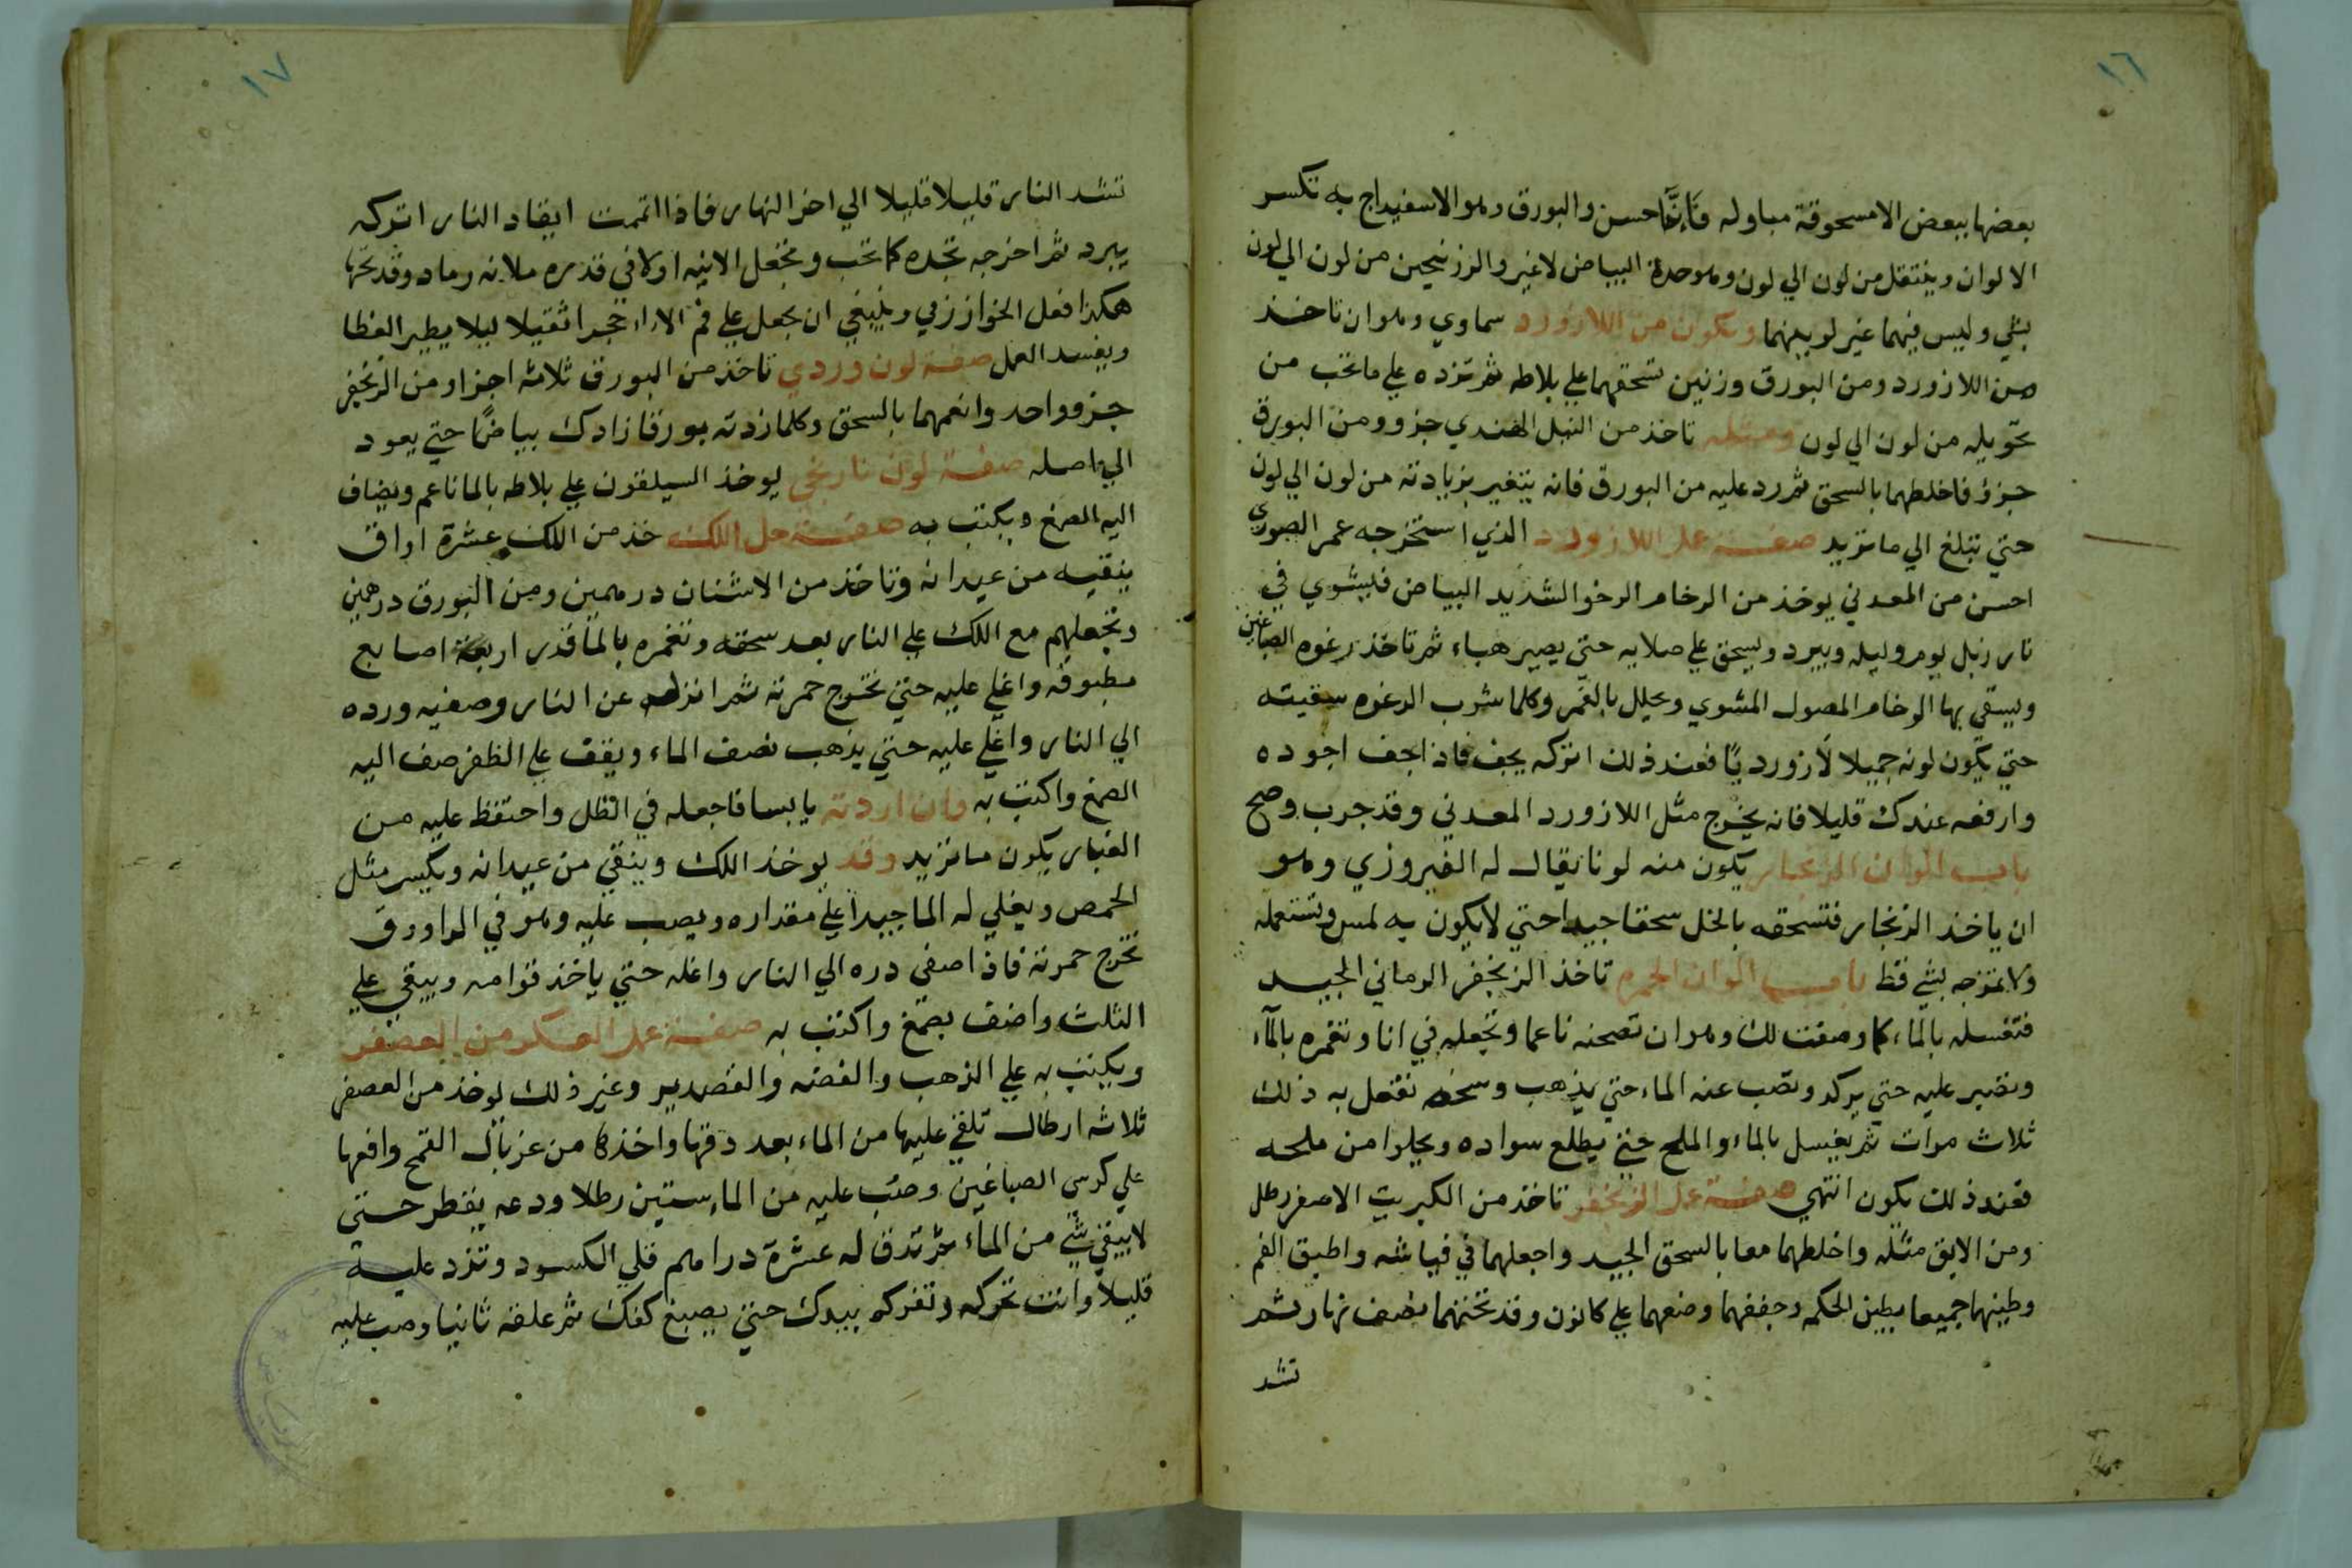 ١٦
بعضها ببعض الا مسحوقة مباوله فانها حسن والبورق وهو الاسفيداج به تكسر
الالوان وينتقل من لون الي لون وهو حدة البياض لا غير والزرنيخين من لون الي لون
بشي وليس فيهما غير لوينهما ويكون من اللازورد سماوي وهو ان تاخذ
من اللازورد ومن البورق وزنين تسحقهما علي بلاطه ثم تزده علي ما تحب من
تحويله من لون الي لون ومثله تاخذ من النيل الهندي جزو ومن البورق
جزؤ فاخلطهما بالسحق ثم رد عليه من البورق فانه يتغير بزيادته من لون الي لون
حتي تبلغ الي ما تريد صفة عمل اللازورد الذي استخرجه عمر الصوري
احسن من المعدني يوخذ من الرخام الرخو الشديد البياض فيشوي في
نار زبل يوم وليله ويبرد ويسحق علي صلايه حتي يصير هباء ثم تاخذ رغوه الصباغين
ويسقي بها الرخام المصول المشوي ويحلل بالغمر وكلما شرب الرغوه سقيته
حتي يكون لونه جميلا لازورديا فعند ذلك اتركه يجف فاذا جف اجوده
وارفعه عندك قليلا فانه يخرج مثل اللازورد المعدني وقد جرب وصح
باب الوان الزنجار يكون منه لونا يقال له الفيروزي وهو
ان ياخذ الزنجار فتسحقه بالخل سحقا جيدا حتي لا يكون به لمس وتستعمله
ولا تمزجه بشي قط باب الوان الحمره تاخذ الزنجفر الرماني الجيد
فتغسله بالماء كما وصفت لك وهو ان تصحنه ناعما وتجعله في انا وتغمره بالماء
وتصبر عليه حتي يركد وتصب عنه الماء حتي يذهب وسخه تفعل به ذلك
ثلاث مرات ثم يغسل بالماء والملح حتي يطلع سواده ويحلوا من ملحه
فعند ذلك يكون انتهي صفة عمل الزنجفر تاخذ من الكبريت الاصفر رطل
ومن الابق مثله واخلطهما معا بالسحق الجيد واجعلهما في قياشه واطبق الفم
وطينهما جميعا بطين الحكمه وجففهما وضعهما علي كانون وقد تحتهما نصف نهار ثم
تشد
١٧
تشد النار قليلا قليلا الي اخر النهار فاذا اتممت ايقاد النار اتركه
يبرد ثم اخرجه تجده كما تحب وتجعل الانيه اولا في قدره ملانه رماد وقد تحتها
هكذا فعل الخوازرمي وينبغي ان يجعل علي فم الاناء حجرا ثقيلا ليلا يطير الغطا
ويفسد العمل صفة لون وردي تاخذ من البورق ثلاثه اجزاء ومن الزنجفر
جزو واحد وانعمهما بالسحق وكلما زدته بورقا زادك بياضا حتي يعود
الي اصله صفة لون نارنجي يوخذ السيلقون علي بلاطه بالما ناعم ويضاف
اليه الصمغ ويكتب به صفة حل اللك خذ من اللك عشرة اواق
ينقيه من عيدانه وتاخذ من الاشنان درهمين ومن البورق درهمين
وتجعلهم مع اللك علي النار بعد سحقه وتغمره بالما قدر اربعة اصابع
مطبوقه واغلي عليه حتي تخرج حمرته ثم انزله عن النار وصفيه ورده
الي النار واغلي عليه حتي يذهب نصف الماء ويقف علي الظفر صف اليه
الصمغ واكتب به وان اردته يابسا فاجعله في الظل واحتفظ عليه من
الغبار يكون ما تريد وقد يوخذ اللك وينقي من عيدانه ويكسر مثل
الحمص ويغلي له الما جيدا علي مقداره ويصب عليه وهو في الراووق
تخرج حمرته فاذا صفي رده الي النار واغله حتي ياخذ قوامه ويبقي علي
الثلث واضف بصمغ واكتب به صفة عمل العكر من العصفر
ويكتب به علي الذهب والفضه والقصدير وغير ذلك يوخذ من العصفر
ثلاثه ارطال تلقي عليها من الماء بعد دقها واخذها من غربال القمح وافعها
علي كرسي الصباغين وصب عليه من الماء ستين رطلا ودعه يقطر حتي
لا يبقي شي من الماء ثم تدق له عشرة دراهم قلي الكسود وتزد عليه
قليلا وانت تحركه وتفركه بيدك حتي يصبغ كفك ثم علقه ثانيا وصب عليه